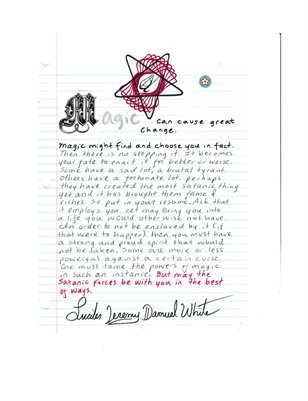 Magic can cause great
change.
Magic might find and choose you in fact.
Then there is no stopping it. It becomes
your fate to enact it for better or worse.
Some have a sad lot, a brutal tyrant.
Others have a fortunate lot. perhaps
they have created the most satanic thing
yet and it has brought them fame &
riches. So put in your resume. Ask that
it employs you. It may bring you into
a life you would otherwise not have.
In order to not be enslaved by it (if
that were to happen) then you must have
a strong and proud spirit that would
not be taken. Some are more or less
powerful against a certain curse.
One must tame the powers of magic
in such an instance. But may the
Satanic forces be with you in the best
of ways.
Jeremy Damuel White